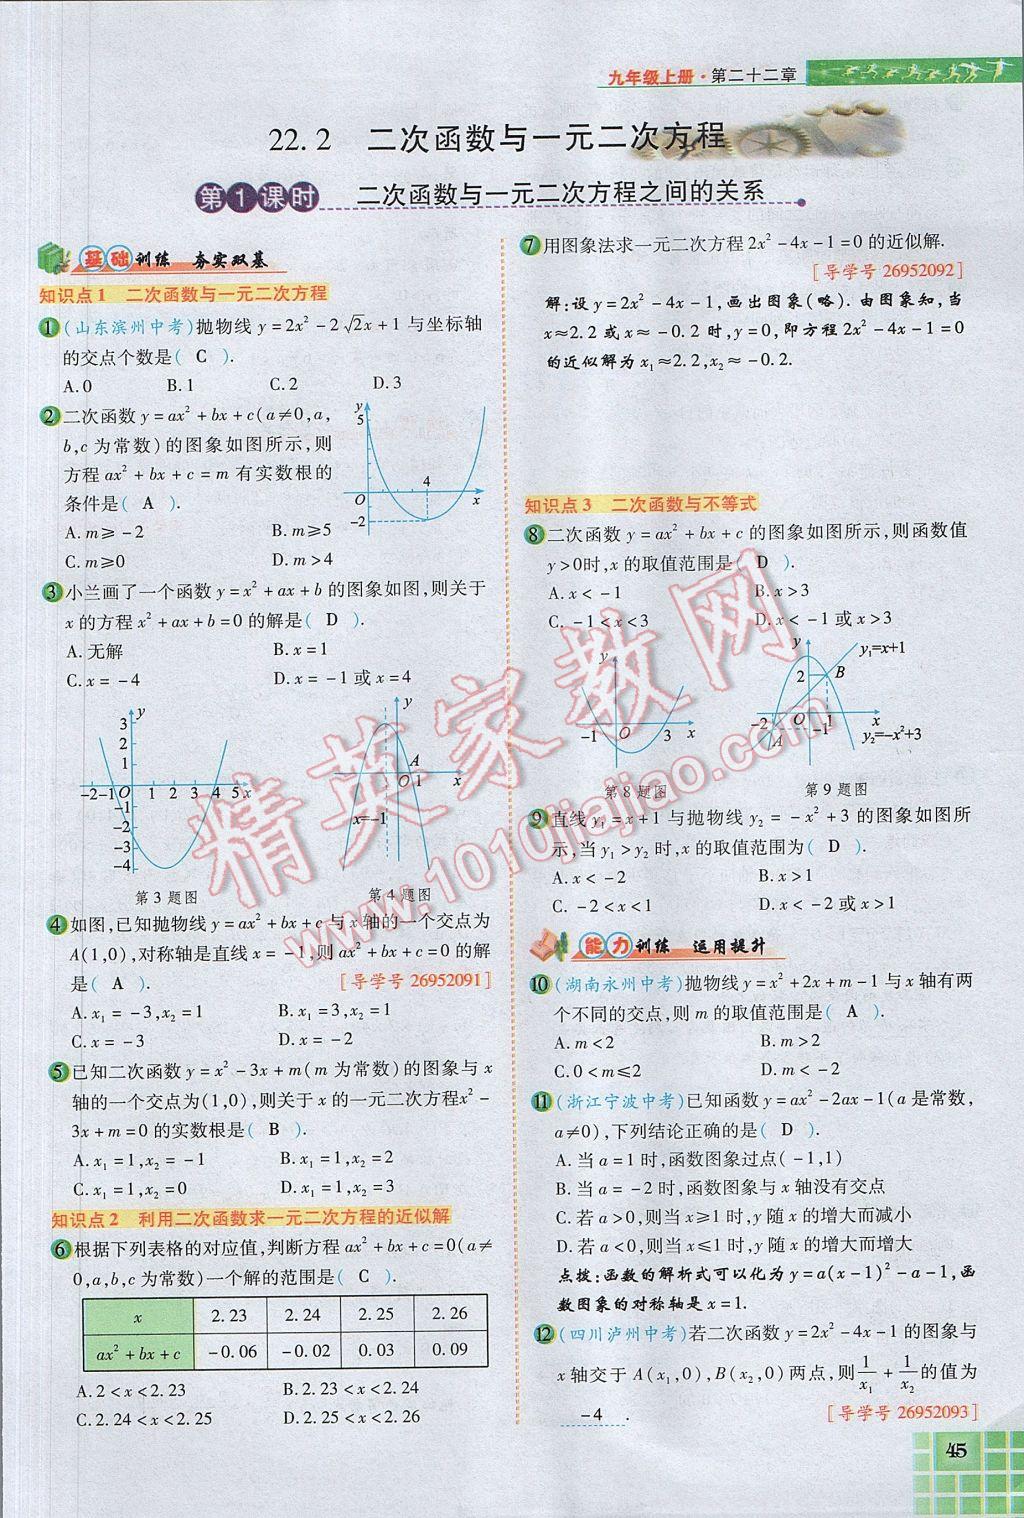 九年级上册·第二十二章
22.2 二次函数与一元二次方程
第1课时 二次函数与一元二次方程之间的关系
基础训练 夯实双基
知识点1 二次函数与一元二次方程
1 (山东滨州中考)抛物线 y=2x²-2√2x+1 与坐标轴
的交点个数是( C ).
A.0 B.1 C.2 D.3
2 二次函数 y=ax²+bx+c(a≠0,a,
b,c 为常数)的图象如图所示,则
方程 ax²+bx+c=m 有实数根的
条件是( A ).
A.m≥-2 B.m≥5
C.m≥0 D.m>4
y
5
4
O
x
-2
3 小兰画了一个函数 y=x²+ax+b 的图象如图,则关于
x 的方程 x²+ax+b=0 的解是( D ).
A.无解 B.x=1
C.x=-4 D.x=-1 或 x=4
y
3
2
1
-2 -1 O 1 2 3 4 5 x
-2
-3
-4
第3题图
y
A
O 1 x
x=-1
第4题图
4 如图,已知抛物线 y=ax²+bx+c 与 x 轴的一个交点为
A(1,0),对称轴是直线 x=-1,则 ax²+bx+c=0 的解
是( A ). [导学号 26952091]
A.x₁=-3,x₂=1 B.x₁=3,x₂=1
C.x=-3 D.x=-2
5 已知二次函数 y=x²-3x+m(m 为常数)的图象与 x
轴的一个交点为(1,0),则关于 x 的一元二次方程x²-
3x+m=0 的实数根是( B ).
A.x₁=1,x₂=-1 B.x₁=1,x₂=2
C.x₁=1,x₂=0 D.x₁=1,x₂=3
知识点2 利用二次函数求一元二次方程的近似解
6 根据下列表格的对应值,判断方程 ax²+bx+c=0(a≠
0,a,b,c 为常数)一个解的范围是( C ).
x 2.23 2.24 2.25 2.26
ax²+bx+c -0.06 -0.02 0.03 0.09
A.2<x<2.23 B.2.23<x<2.24
C.2.24<x<2.25 D.2.25<x<2.26
7 用图象法求一元二次方程 2x²-4x-1=0 的近似解.
[导学号 26952092]
解:设 y=2x²-4x-1,画出图象(略).由图象知,当
x≈2.2 或 x≈-0.2 时,y=0,即方程 2x²-4x-1=0
的近似解为 x₁≈2.2,x₂≈-0.2.
知识点3 二次函数与不等式
8 二次函数 y=ax²+bx+c 的图象如图所示,则函数值
y>0时,x 的取值范围是( D ).
A.x<-1 B.x>3
C.-1<x<3 D.x<-1 或 x>3
y
-1 O 3 x
第8题图
y y₁=x+1
2 B
-2 O 1 x
A -1
y₂=-x²+3
第9题图
9 直线 y₁=x+1 与抛物线 y₂=-x²+3 的图象如图所
示,当 y₁>y₂ 时,x 的取值范围为( D ).
A.x<-2 B.x>1
C.-2<x<1 D.x<-2 或 x>1
能力训练 运用提升
10 (湖南永州中考)抛物线 y=x²+2x+m-1 与 x 轴有两
个不同的交点,则 m 的取值范围是( A ).
A.m<2 B.m>2
C.0<m≤2 D.m<-2
11 (浙江宁波中考)已知函数 y=ax²-2ax-1(a 是常数,
a≠0),下列结论正确的是( D ).
A.当 a=1 时,函数图象过点(-1,1)
B.当 a=-2 时,函数图象与 x 轴没有交点
C.若 a>0,则当 x≥1 时,y 随 x 的增大而减小
D.若 a<0,则当 x≤1 时,y 随 x 的增大而增大
点拨:函数的解析式可以化为 y=a(x-1)²-a-1,函
数图象的对称轴是 x=1.
12 (四川泸州中考)若二次函数 y=2x²-4x-1 的图象与
x 轴交于 A(x₁,0),B(x₂,0)两点,则 1/x₁ + 1/x₂ 的值为
-4 . [导学号 26952093]
45
精英家教网
www.1010jiajiao.com